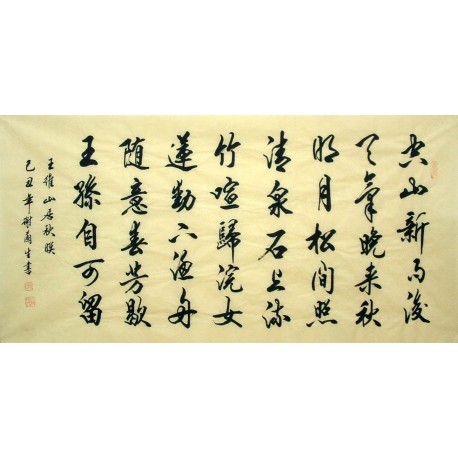 空山新雨後
天氣晚来秋
明月松間照
清泉石上流
竹喧歸浣女
蓮動下漁舟
随意春芳歇
王孫自可留
王維山居秋暝
己丑年謝生書